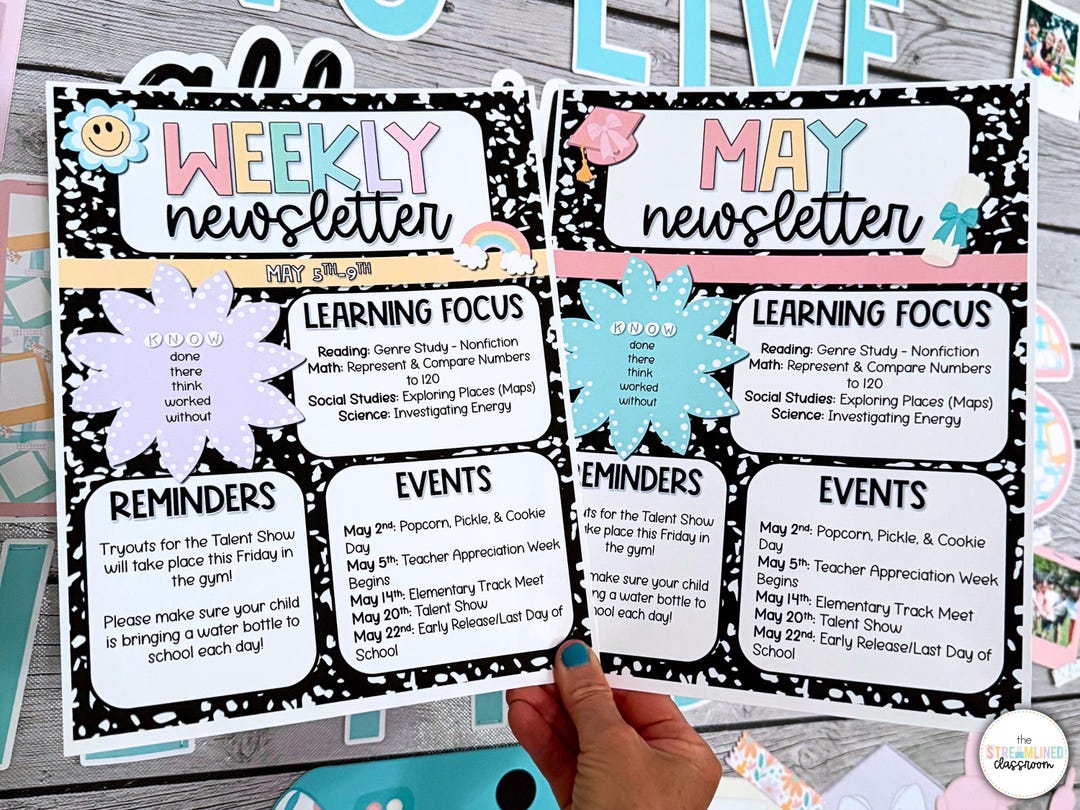 LIVE
all
WEEKLY
newsletter
MAY 5TH-9TH
KNOW
done
there
think
worked
without
LEARNING FOCUS
Reading: Genre Study - Nonfiction
Math: Represent & Compare Numbers
to 120
Social Studies: Exploring Places (Maps)
Science: Investigating Energy
REMINDERS
Tryouts for the Talent Show
will take place this Friday in
the gym!
Please make sure your child
is bringing a water bottle to
school each day!
EVENTS
May 2nd: Popcorn, Pickle, & Cookie
Day
May 5th: Teacher Appreciation Week
Begins
May 14th: Elementary Track Meet
May 20th: Talent Show
May 22nd: Early Release/Last Day of
School
MAY
newsletter
KNOW
done
there
think
worked
without
LEARNING FOCUS
Reading: Genre Study - Nonfiction
Math: Represent & Compare Numbers
to 120
Social Studies: Exploring Places (Maps)
Science: Investigating Energy
REMINDERS
for the Talent Show
take place this Friday in
the gym!
make sure your child
a water bottle to
each day!
EVENTS
May 2nd: Popcorn, Pickle, & Cookie
Day
May 5th: Teacher Appreciation Week
Begins
May 14th: Elementary Track Meet
May 20th: Talent Show
May 22nd: Early Release/Last Day of
School
the
STREAMLINED
classroom